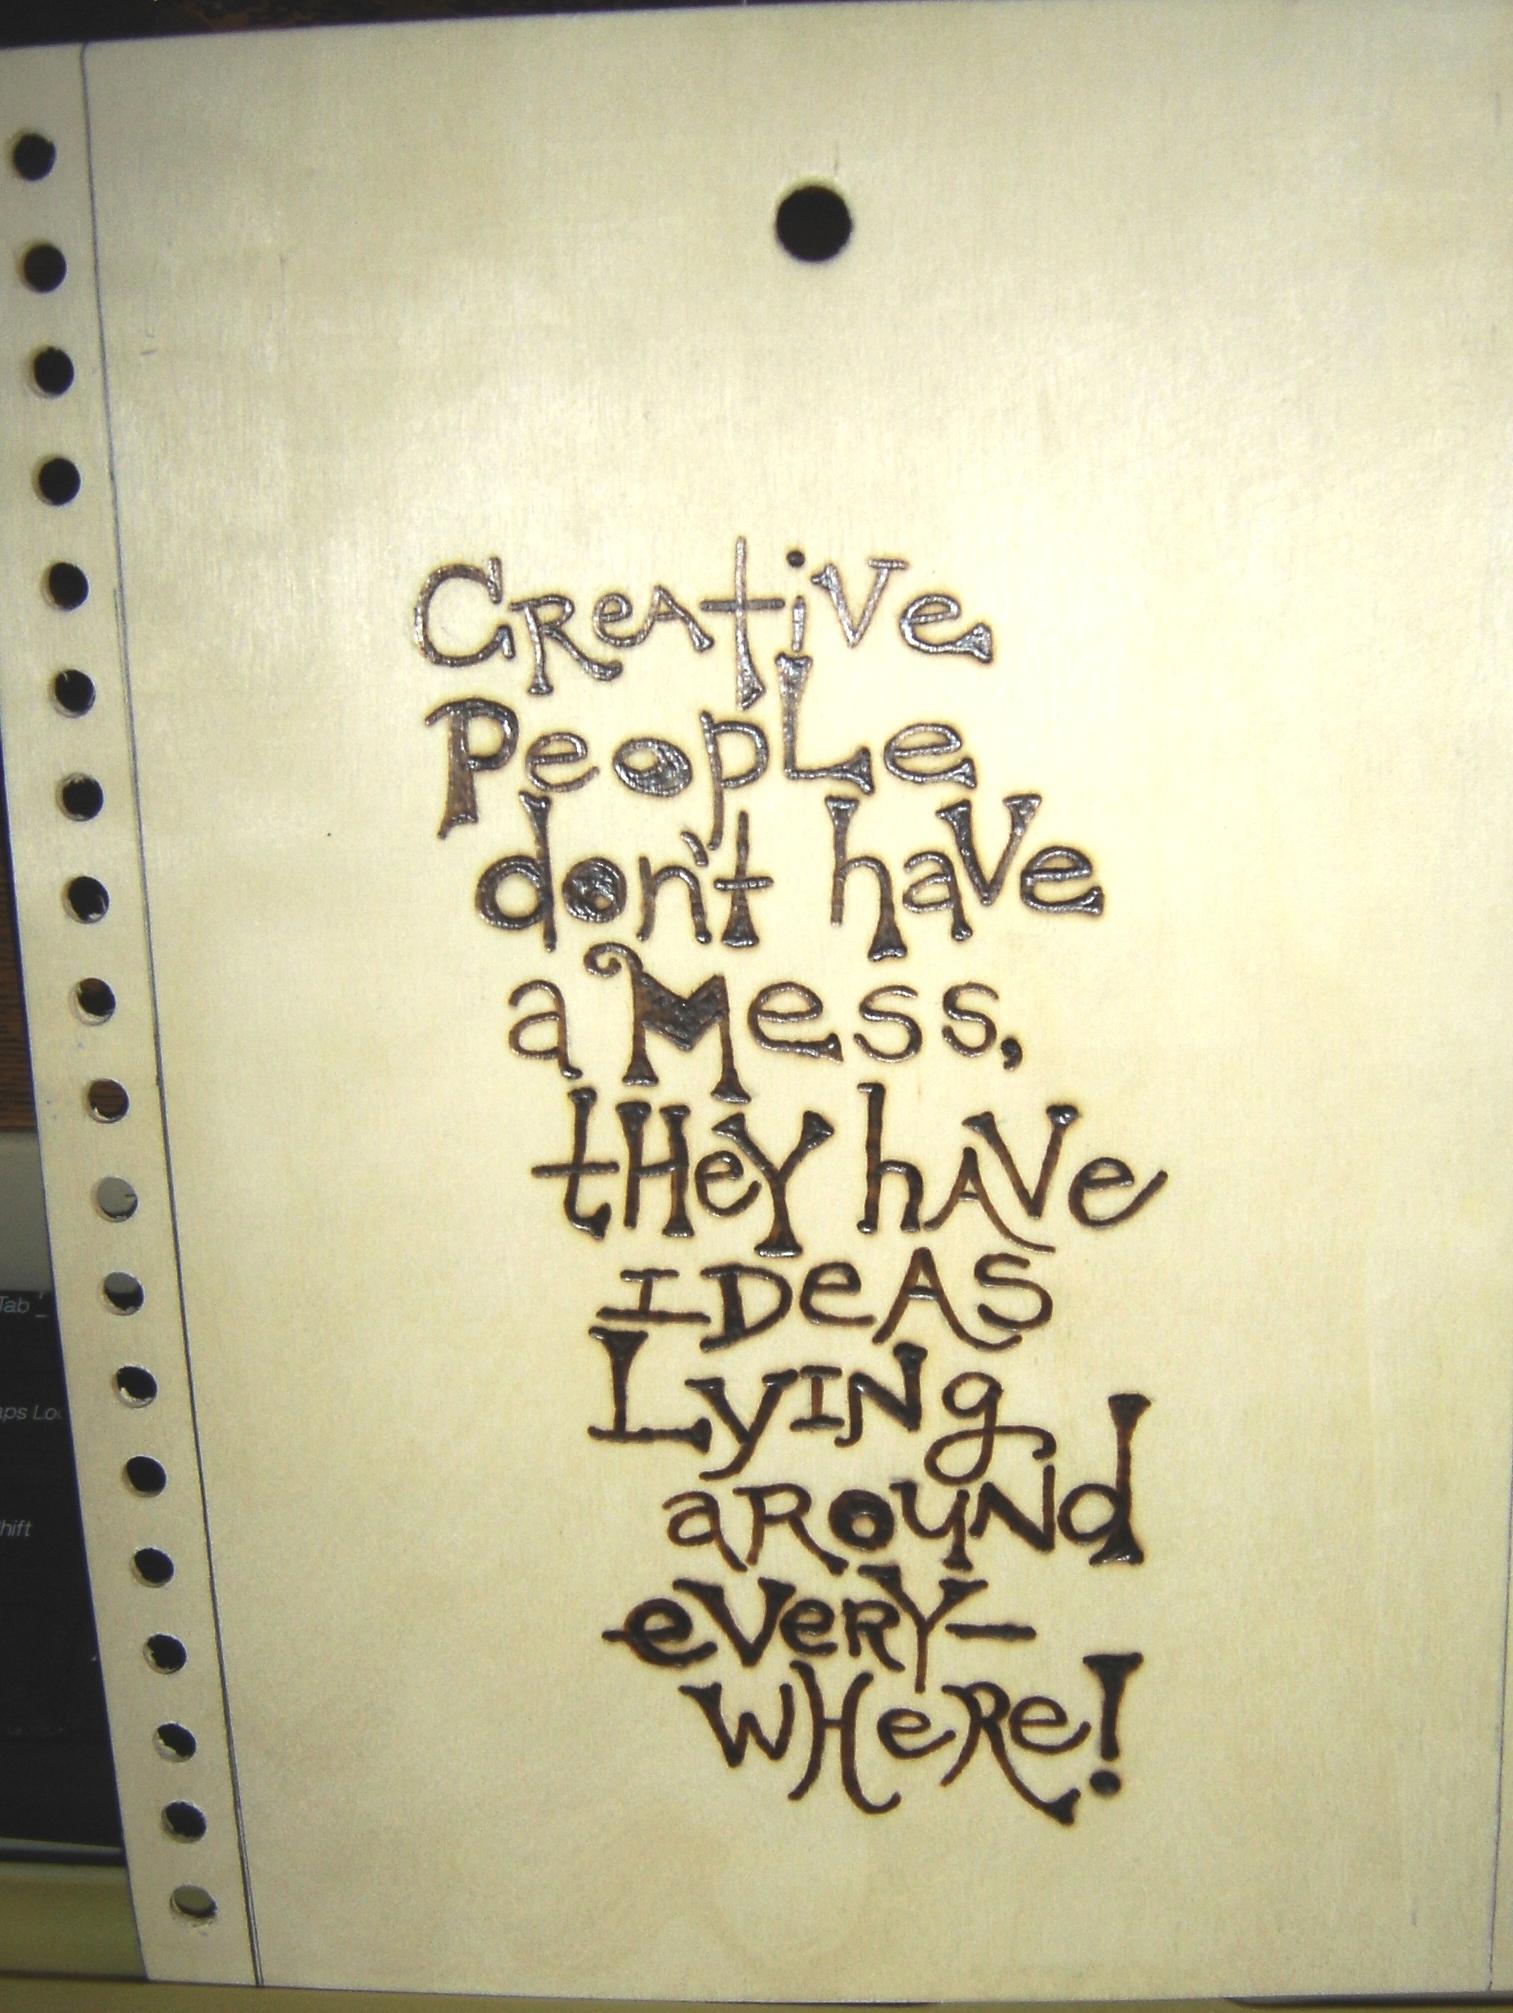 Creative
People
don't have
a Mess,
tHey hAVe
IDeAS
LyINg
aROuNd
eVeRY-
wHeRe!
Tab
aps Lo
hift